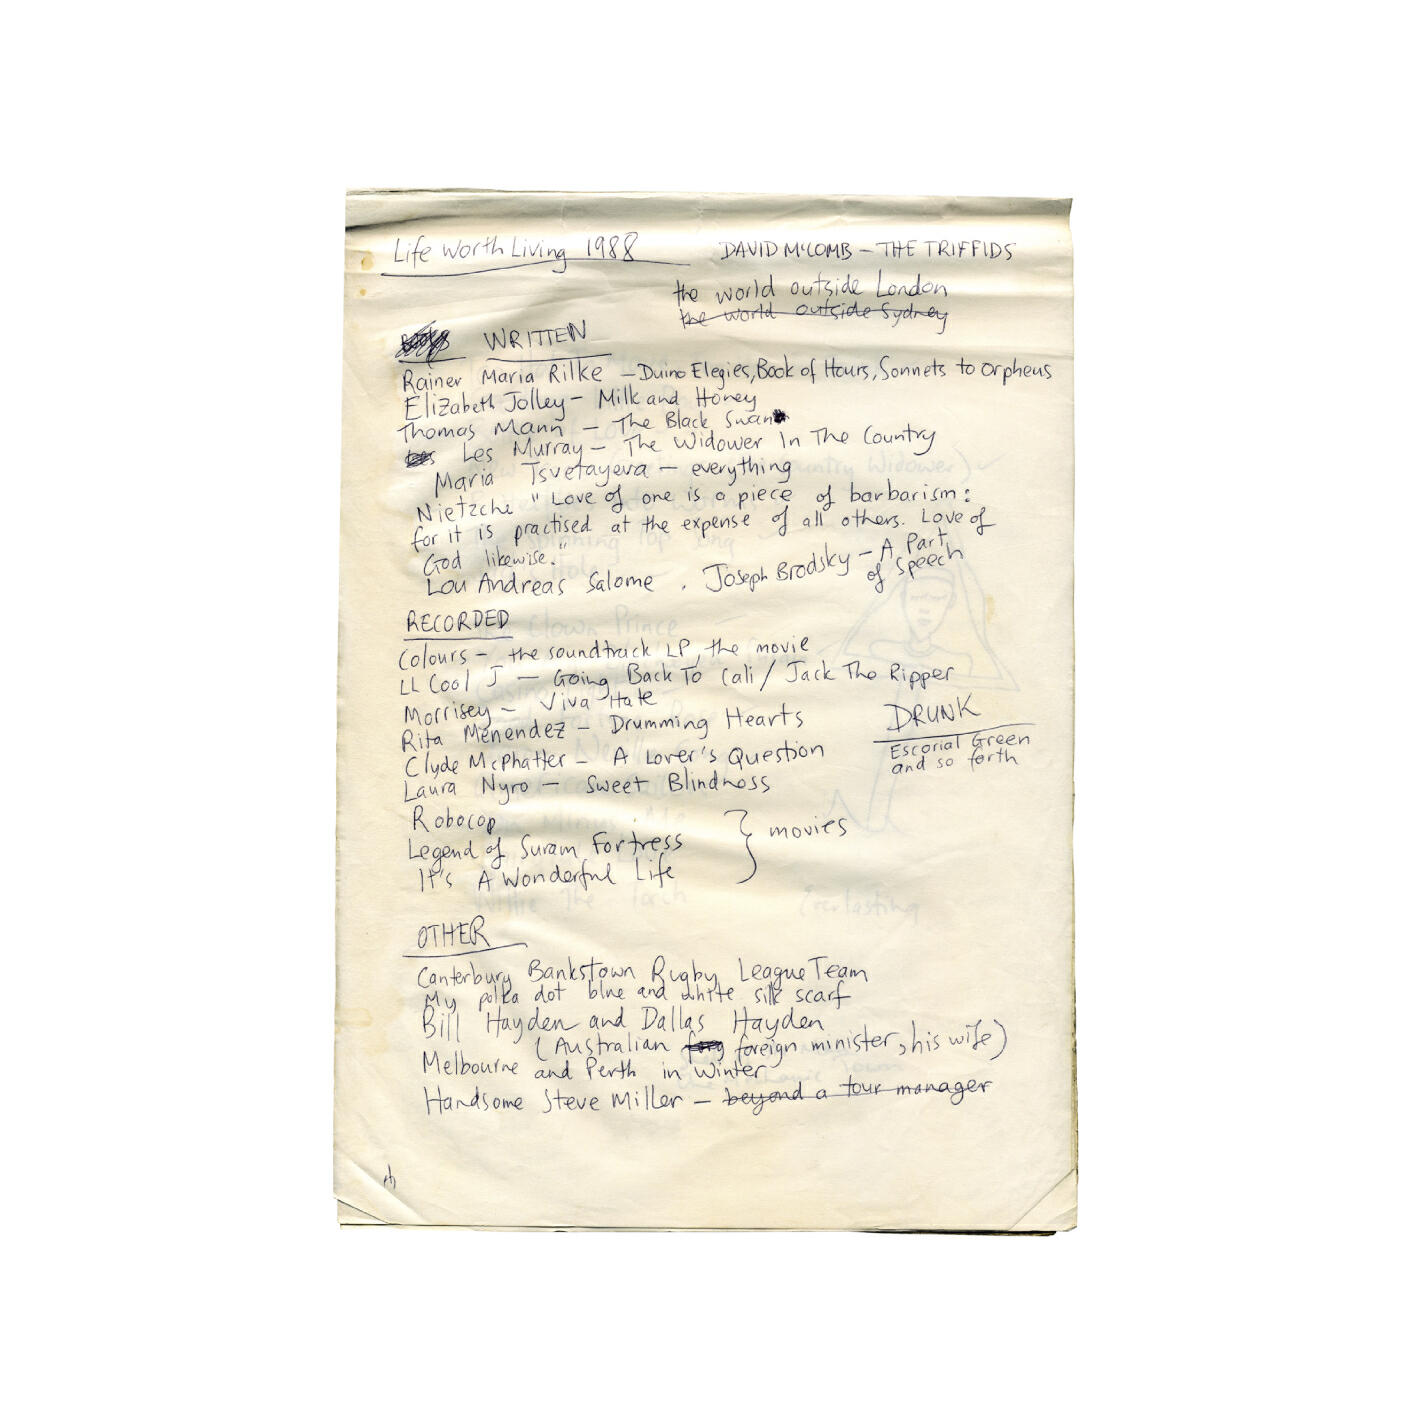 Life Worth Living 1988
DAVID McCOMB – THE TRIFFIDS
the world outside London
the world outside Sydney
WRITTEN
Rainer Maria Rilke – Duino Elegies, Book of Hours, Sonnets to Orpheus
Elizabeth Jolley – Milk and Honey
Thomas Mann – The Black Swan
Les Murray – The Widower In The Country
Maria Tsvetayeva – everything
Nietzche "Love of one is a piece of barbarism:
for it is practised at the expense of all others. Love of
God likewise."
Lou Andreas Salome . Joseph Brodsky – A Part
of Speech
RECORDED
Colours – the soundtrack LP, the movie
LL Cool J – Going Back To Cali / Jack The Ripper
Morrisey – Viva Hate
Rita Menendez – Drumming Hearts
Clyde McPhatter – A Lover's Question
Laura Nyro – Sweet Blindness
DRUNK
Escorial Green
and so forth
Robocop
Legend of Suram Fortress } movies
It's A Wonderful Life
OTHER
Canterbury Bankstown Rugby League Team
My polka dot blue and white silk scarf
Bill Hayden and Dallas Hayden
(Australian foreign minister, his wife)
Melbourne and Perth in Winter
Handsome Steve Miller – beyond a tour manager
Everlasting